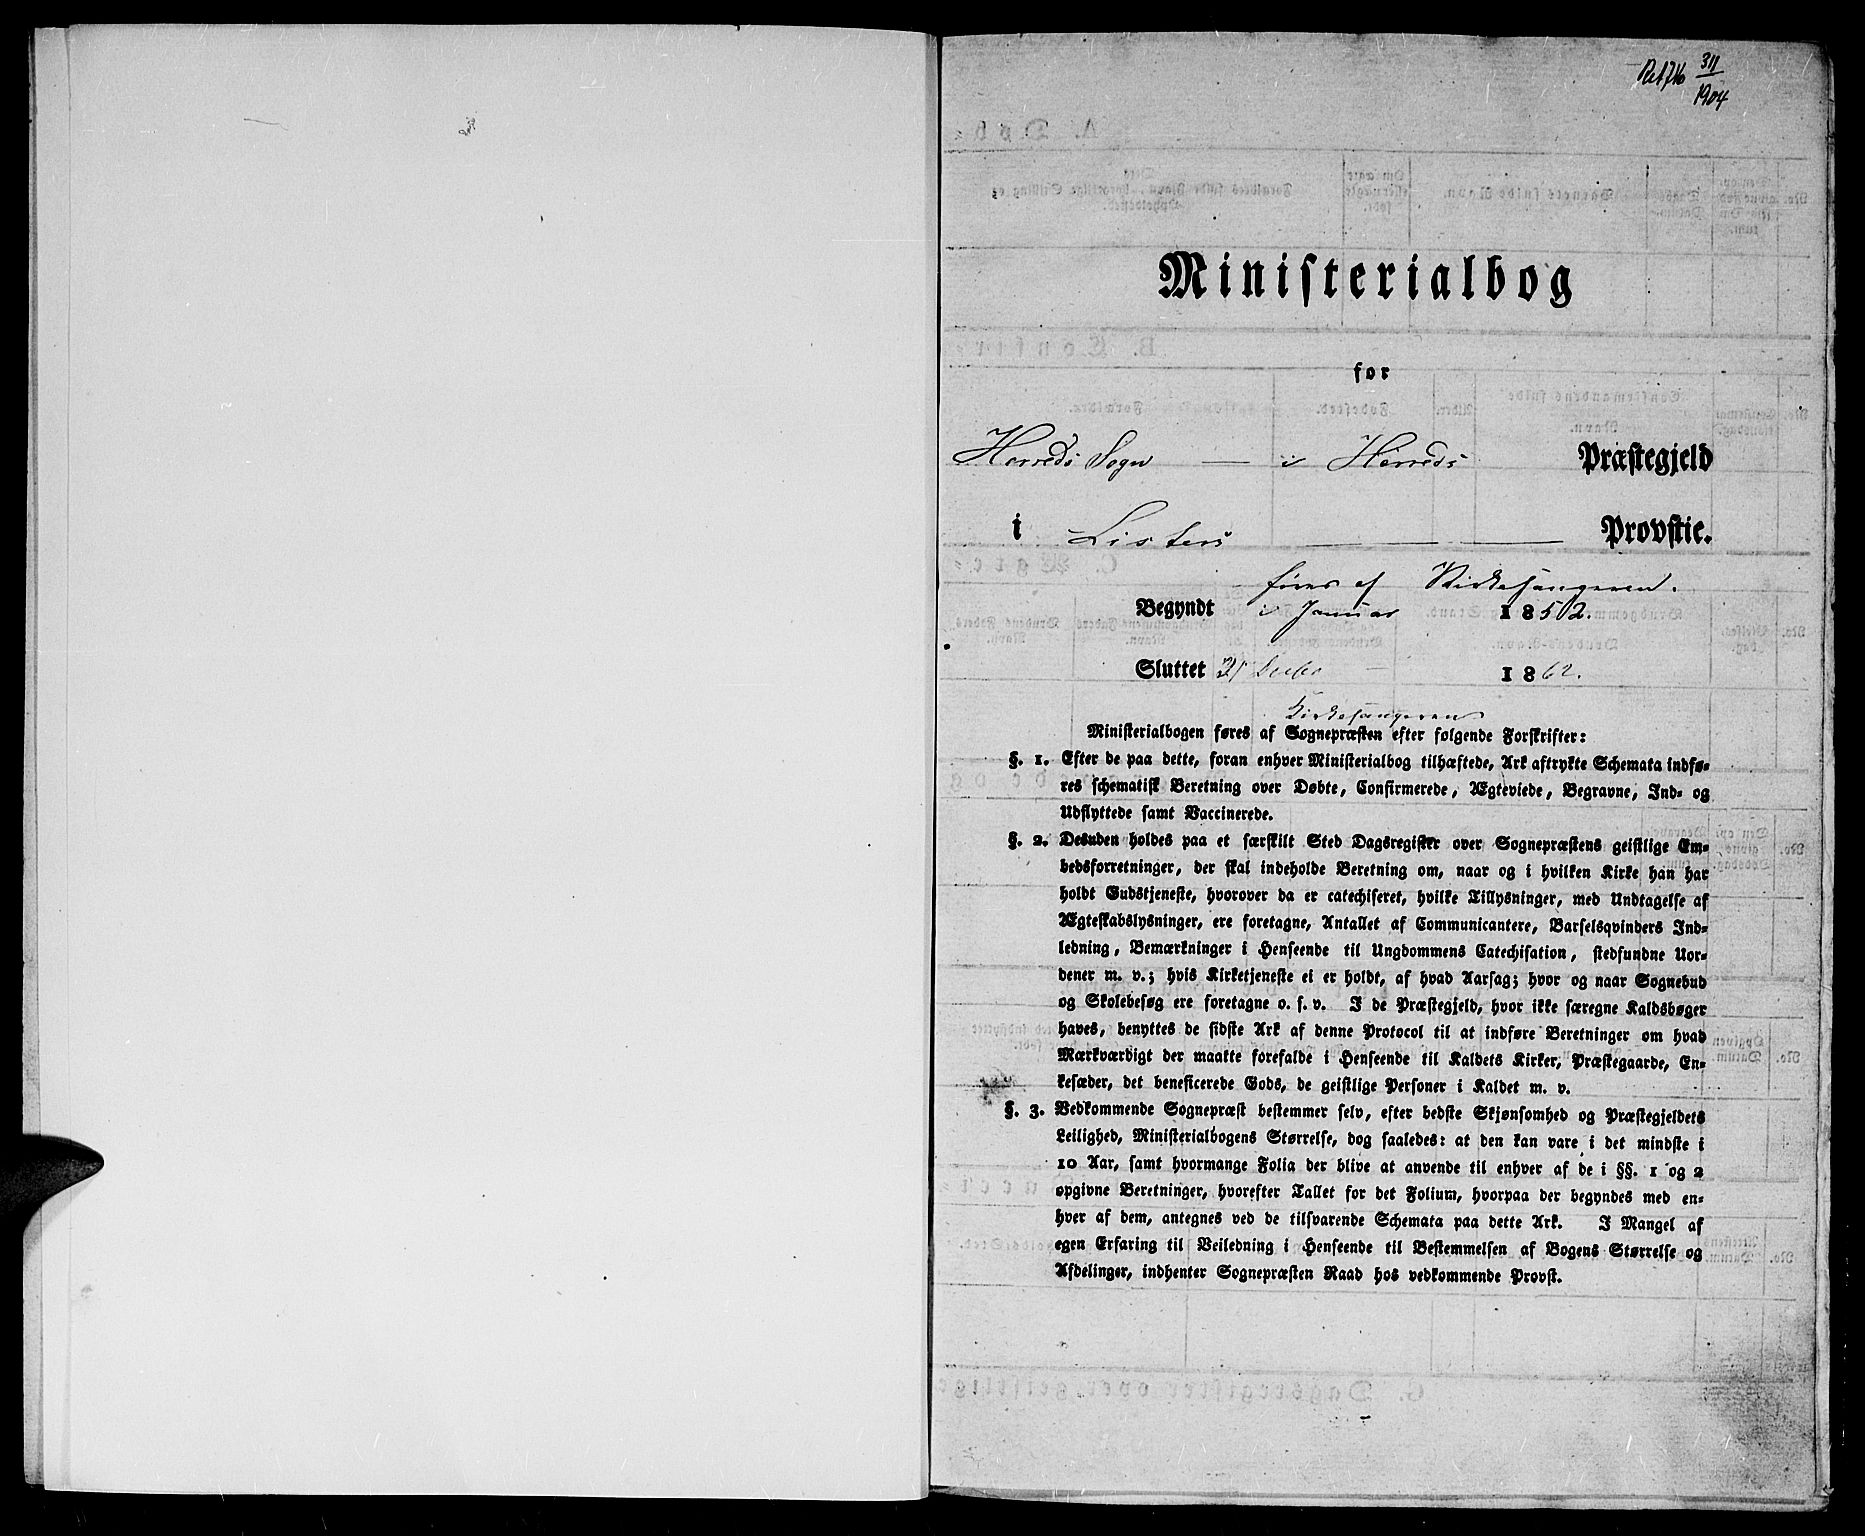 311
1904
Ministerialbog
for
Herreds Sogn — i Herreds Præstegjeld
i Listers Provstie.
føres af Kirkesangeren.
Begyndt i Januar 1852.
Sluttet 31 Decbr 1862.
Kirkesangeren
Ministerialbogen føres af Sognepræsten efter følgende Forskrifter:
§. 1. Efter de paa dette, foran enhver Ministerialbog tilhæftede, Ark aftrykte Schemata indfø-
res schematisk Beretning over Døbte, Confirmerede, Ægteviede, Begravne, Ind- og
Udflyttede samt Vaccinerede.
§. 2. Desuden holdes paa et særskilt Sted Dagsregister over Sognepræstens geistlige Em-
bedsforretninger, der skal indeholde Beretning om, naar og i hvilken Kirke han har
holdt Gudstjeneste, hvorover da er catechiseret, hvilke Tillysninger, med Undtagelse af
Ægteskabslysninger, ere foretagne, Antallet af Communicantere, Barselsqvinders Ind-
ledning, Bemærkninger i Henseende til Ungdommens Catechisation, stedfundne Uor-
dener m. v.; hvis Kirketjeneste ei er holdt, af hvad Aarsag; hvor og naar Sognebud
og Skolebesøg ere foretagne o. s. v. I de Præstegjeld, hvor ikke særegne Kaldsbøger
haves, benyttes de sidste Ark af denne Protocol til at indføre Beretninger om hvad
Mærkværdigt der maatte forefalde i Henseende til Kaldets Kirker, Præstegaarde, En-
kesæder, det beneficerede Gods, de geistlige Personer i Kaldet m. v.
§. 3. Vedkommende Sognepræst bestemmer selv, efter bedste Skjønsomhed og Præstegjeldets
Leilighed, Ministerialbogens Størrelse, dog saaledes: at den kan vare i det mindste i
10 Aar, samt hvormange Folia der blive at anvende til enhver af de i §§. 1 og 2
opgivne Beretninger, hvorefter Tallet for det Folium, hvorpaa der begyndes med en-
hver af dem, antegnes ved de tilsvarende Schemata paa dette Ark. I Mangel af
egen Erfaring til Veiledning i Henseende til Bestemmelsen af Bogens Størrelse og
Afdelinger, indhenter Sognepræsten Raad hos vedkommende Provst.